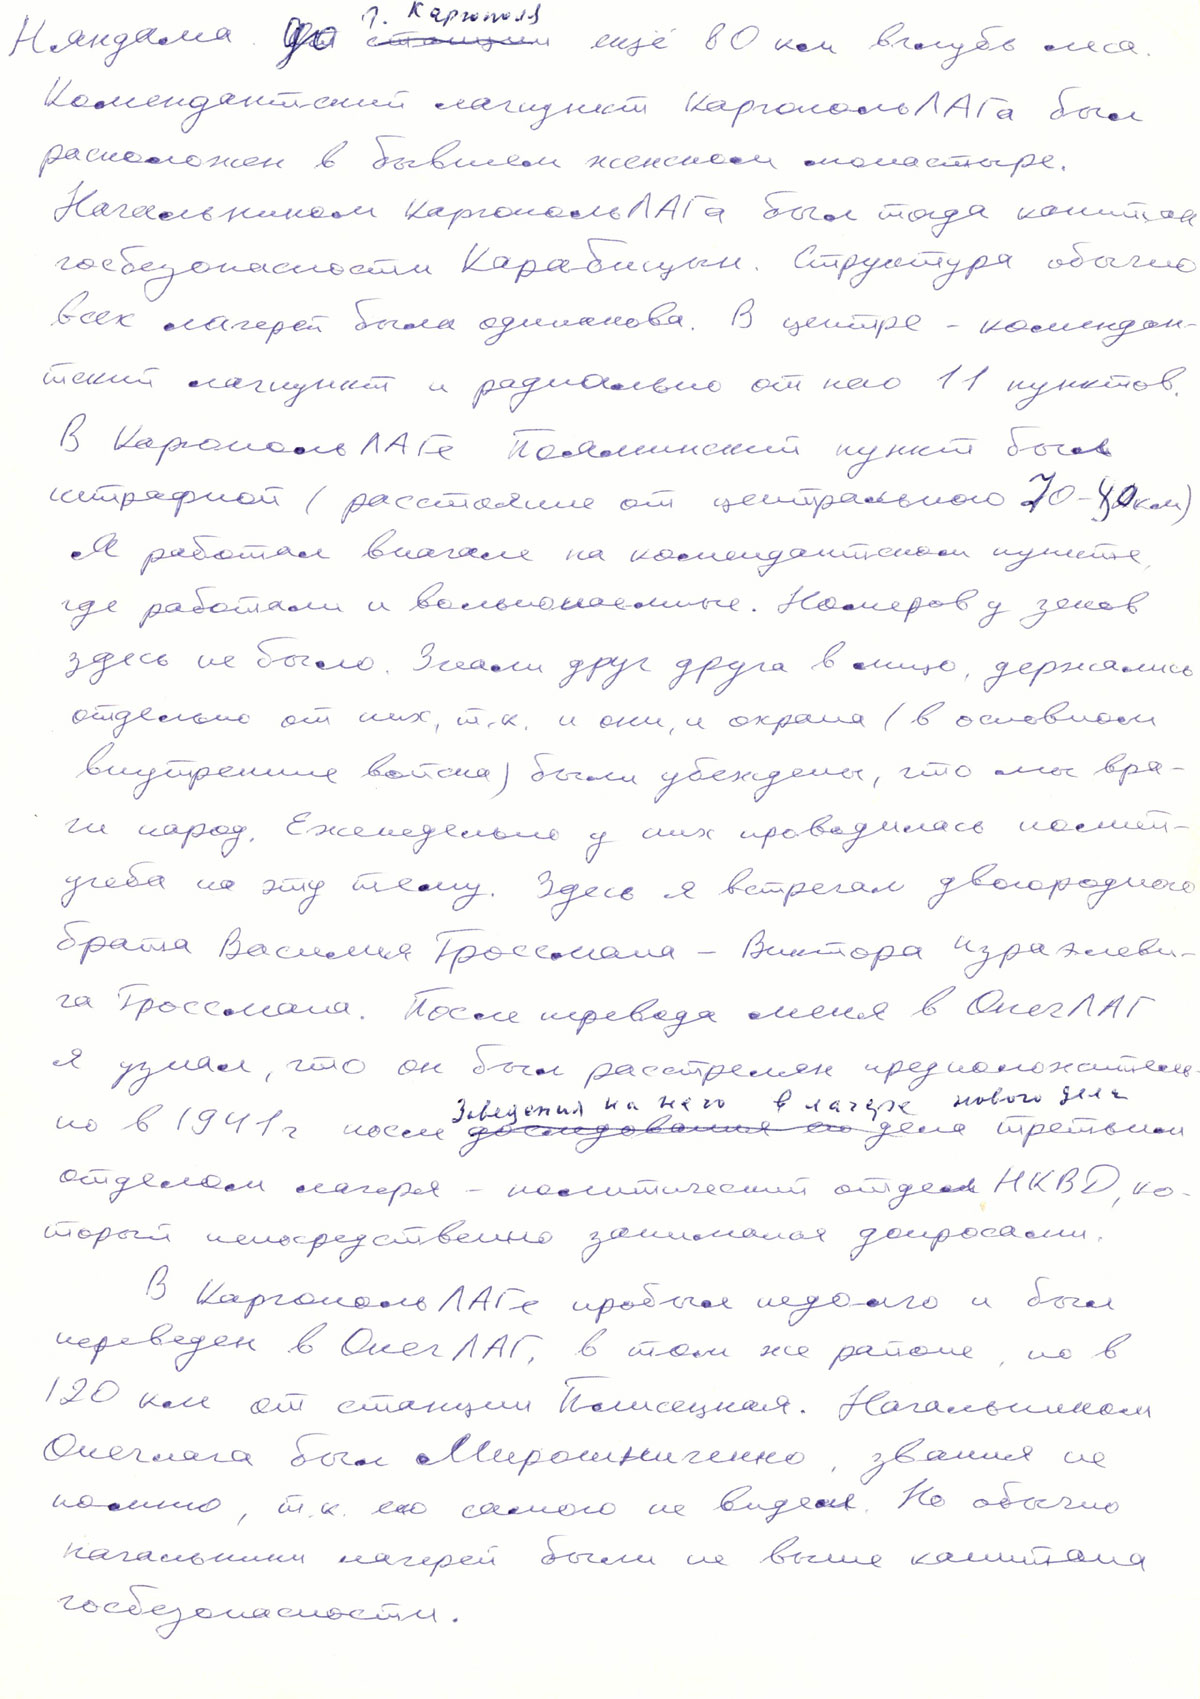 Няндома. До г. Каргополя ещё 80 км вглубь леса.
Комендантский лагпункт КаргопольЛАГа был
расположен в бывшем женском монастыре.
Начальником КаргопольЛАГа был тогда капитан
госбезопасности Карабицын. Структура обычно
всех лагерей была одинакова. В центре - комендан-
тский лагпункт и радиально от него 11 пунктов.
В КаргопольЛАГе пункт был
штрафной (расстояние от центрального км)
Я работал вначале на комендантском пункте,
где работали и вольнонаемные. Номеров у зеков
здесь не было. Знали друг друга в лицо, держались
отдельно от них, т.к. и они, и охрана (в основном
внутренние войска) были убеждены, что мы вра-
ги народ. Еженедельно у них проводилась полит-
учеба на эту тему. Здесь я встречал двоюродного
брата Василия Гроссмана - Виктора Израэлеви-
ча Гроссмана. После перевода меня в ОнегЛАГ
я узнал, что он был расстрелян предположитель-
но в 1941г после заведения на него в лагере нового дела третьим
отделом лагеря - политический отдел НКВД, ко-
торый непосредственно занимался допросами.
В КаргопольЛАГе пробыл недолго и был
переведен в ОнегЛАГ, в том же районе, но в
120 км от станции Плисецкая. Начальником
Онеглага был Мирошниченко, звания не
помню, т.к. его самого не видел. Но обычно
начальники лагерей были не выше капитана
госбезопасности.